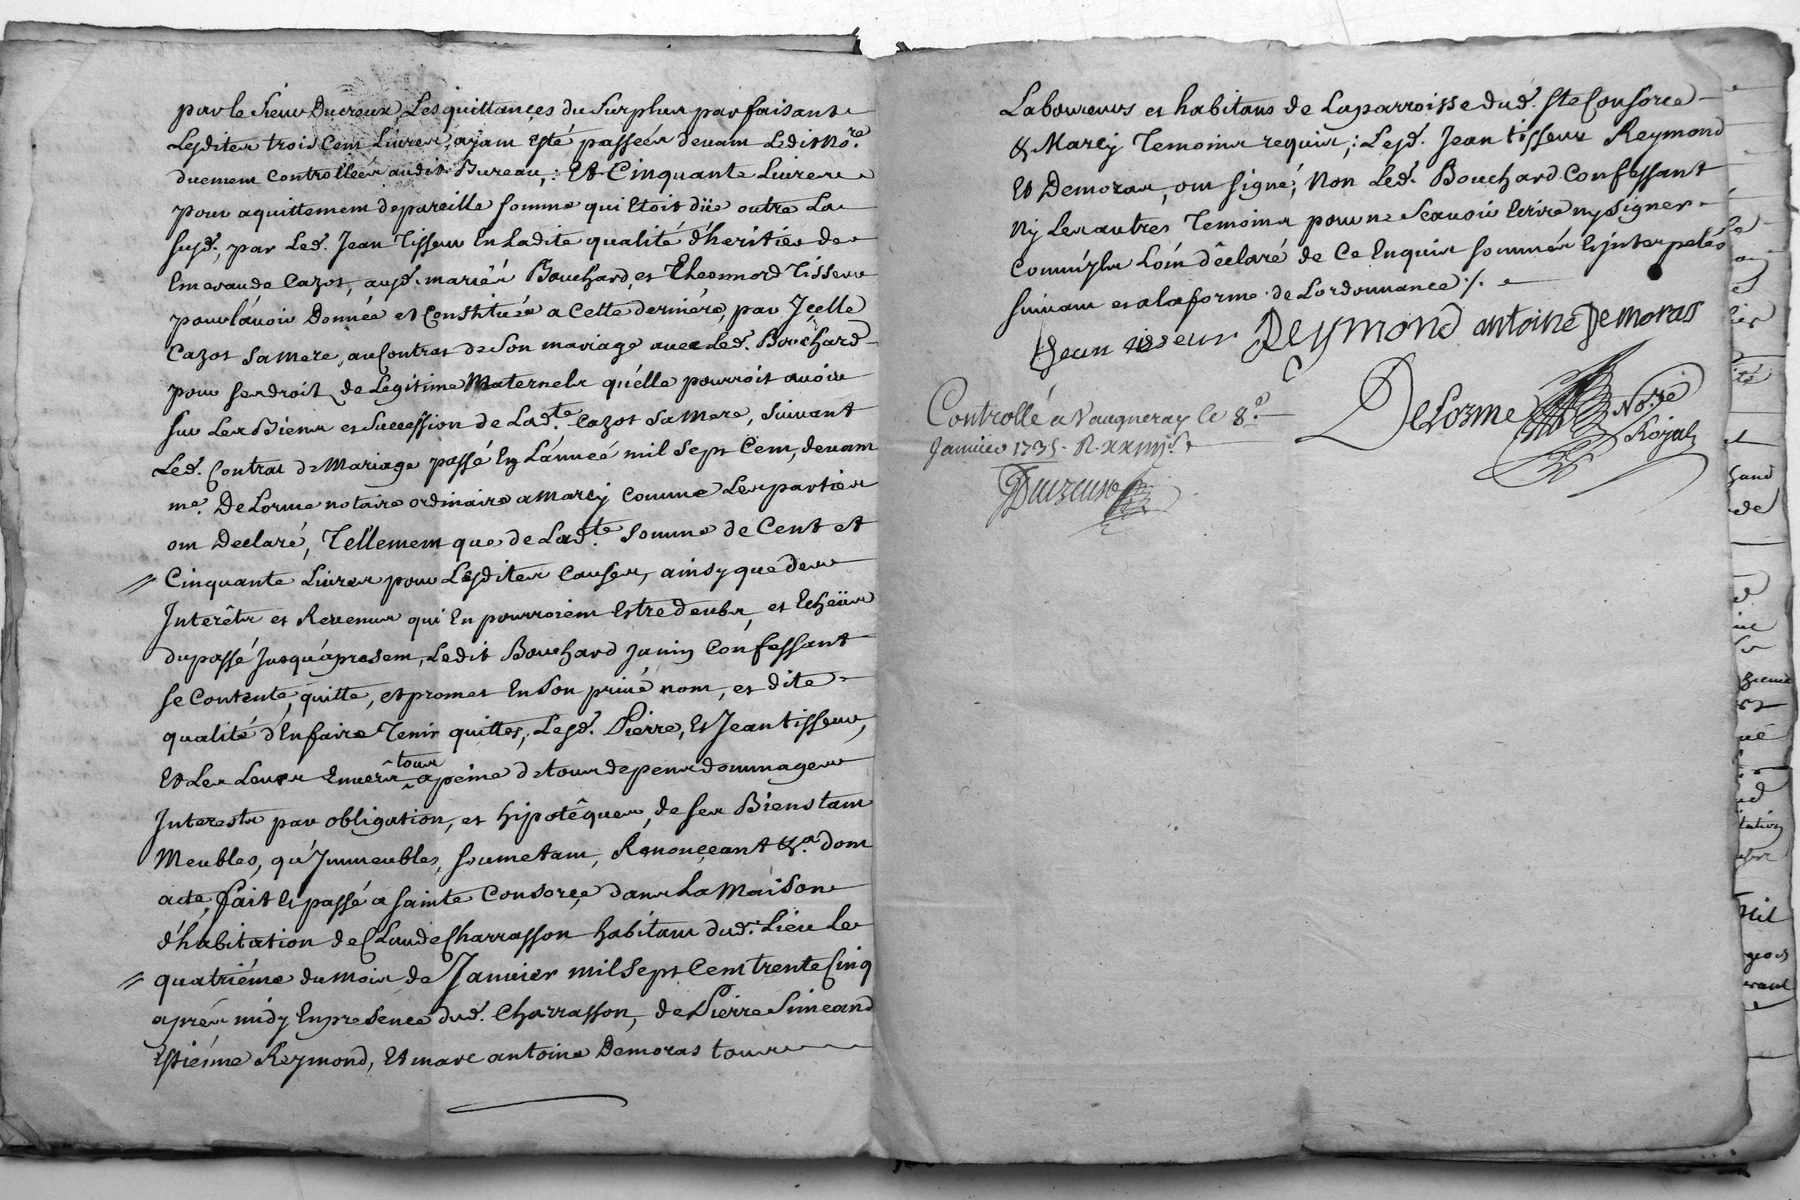 par le Sieur Ducreux Les quittances du Surplus parfaisant
Lesdites trois Cent Livres, ayant esté passées devant Ledit No.re
duement Controllées audit Bureau,: Et Cinquante Livres
pour aquittement de pareille somme qui Etoit düe outre La
susd., par Led. Jean Tisseur En Ladite qualité d'heritier de
Emeraude Cazot, ausd. mariés Bouchard, et Tisseur
pour l'avoir Donnée et Constituée a Cette derniére, par Jcelle
Cazot Sa Mere, au Contrat de Son mariage avec Led. Bouchard
pour ses droits de Legitime Maternels qu'elle pourroit avoir
sur Les Biens et Succession de Lad.te Cazot Sa Mere, Suivant
Led. Contrat de Mariage passé En L'année mil Sept Cent, devant
me. DeLorme notaire ordinaire a Marcy Comme Les parties
ont Declaré, Tellement que de Lad.te Somme de Cent et
Cinquante Livres pour Lesdites Causes, ainsy que des
Interêts et Revenus qui En pourroient Estre deubs, et Echeüs
du passé Jusqu'apresent, Ledit Bouchard Confessant
se Contente, quitte, et promet En Son privé nom, et dite
qualité d'En faire Tenir quittes, Lesd. Pierre, Et Jean tisseur,
Et Les Leurs Envers tous a peine de tous depens dommages
Interests par obligation, et hipotêques, de ses Biens tant
Meubles, qu'Jmmeubles, soumetant, Renonçeant &.a dont
acte, fait Et passé a sainte Consorçe dans La Maison
d'habitation de Claude Charrasson habitant dud. Lieu Le
quatriéme du mois de Janvier mil Sept Cent trente Cinq
aprés midy En presence dud. Charrasson, de Pierre Simeand
Estiénne Reymond, Et marc antoine Demoras tous
Laboureurs et habitans de La parroisse dud. Ste Consorce
& Marcy Temoins requis,: Lesd. Jean tisseur Reymond
Et Demoras, ont signé, Non Led. Bouchard Confessant
Ny Les autres Temoins pour ne Scavoir Ecrire ny signer
Comm'ils L'oint dêclaré de Ce Enquis sommés Et jnterpelés
suivant et a la forme de L'ordonnance ./.
Jean tisseur Reymond antoine Demoras
DeLorme No.re
Royal
Controllé a Vaugneray le 8.e
Janvier 1735.